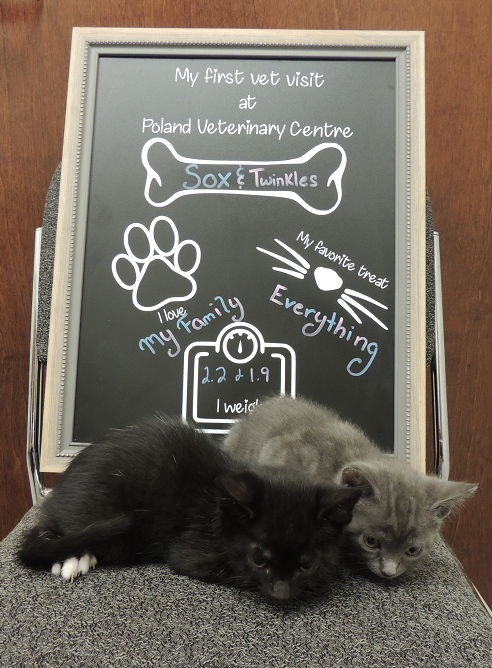 My first vet visit
at
Poland Veterinary Centre
Sox & Twinkles
My favorite treat
Everything
I love
My Family
2.2 & 1.9
I weigh